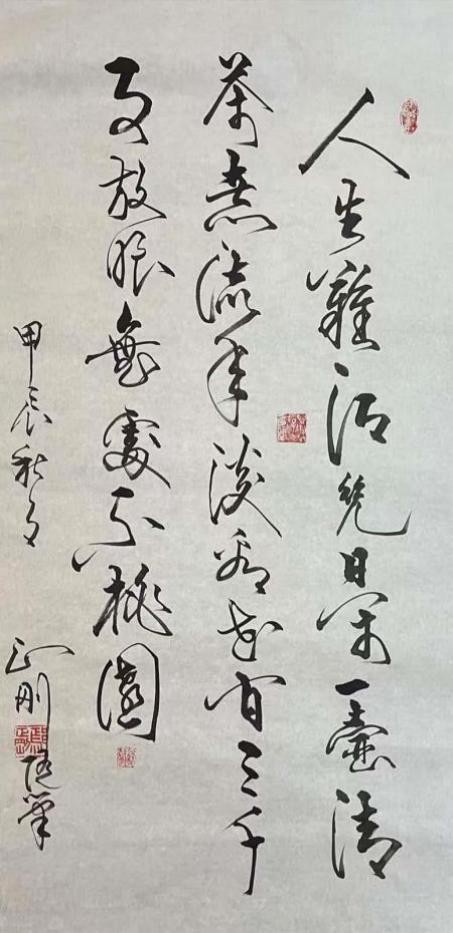 人生難得幾日閑一壺清
茶煮流年淡看世間三千
事放眼無處不桃園
甲辰秋月 正剛 隨筆